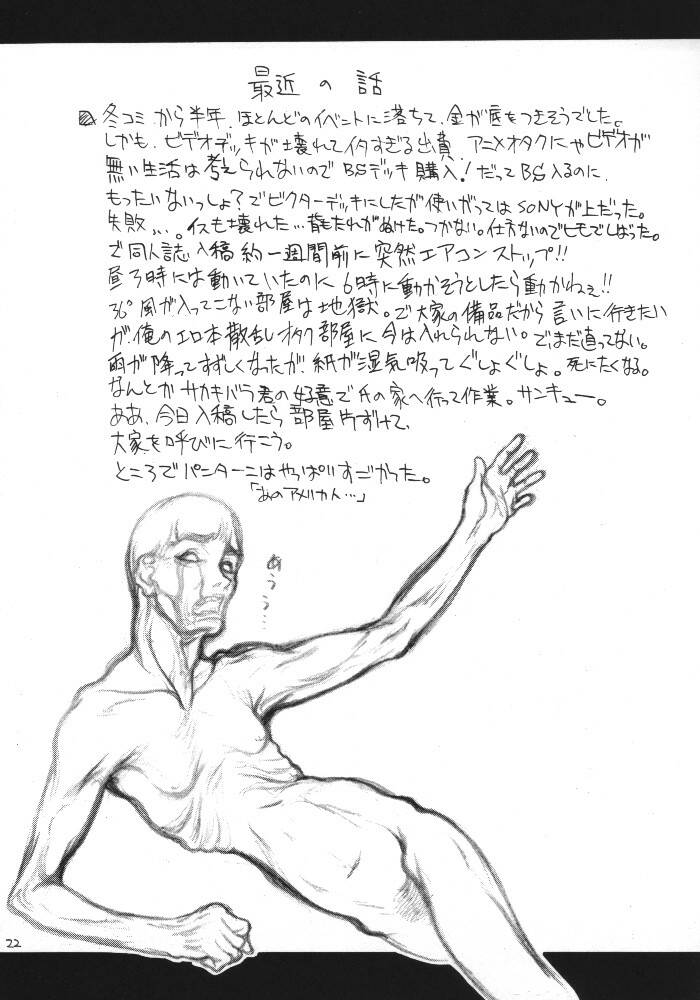 最近の話
冬コミから半年、ほとんどのイベントに落ちて、金が底もつきそうでした。
しかも、ビデオデッキが壊れてイタすぎる出費 アニメオタクにゃビデオが
無い生活は考えられないのでBSデッキ購入!だってBS入るのに、
もったいないっしょ?でビクターデッキにしたが使いがってはSONYが上だった。
失敗、、、。イスも壊れた…背もたれがぬけた。つかない。仕方ないのでヒモでしばった。
で同人誌入稿約一週間前に突然エアコンストップ!!
昼3時には動いていたのに6時に動かそうとしたら動かねぇ!!
36°風が入ってこない部屋は地獄。で大家の備品だから言いに行きたい
が、俺のエロ本散乱オタク部屋に今は入れられない。でまだ直ってない。
雨が降ってすずしくなったが、紙が湿気吸ってぐしょぐしょ。死にたくなる。
なんとかサカキバラ君の好意で氏の家へ行って作業。サンキュー。
ああ、今日入稿したら部屋片ずけて、
大家を呼びに行こう。
ところでパンターニはやっぱりすごかった。
「あのアメリカ人…」
あうう…
22